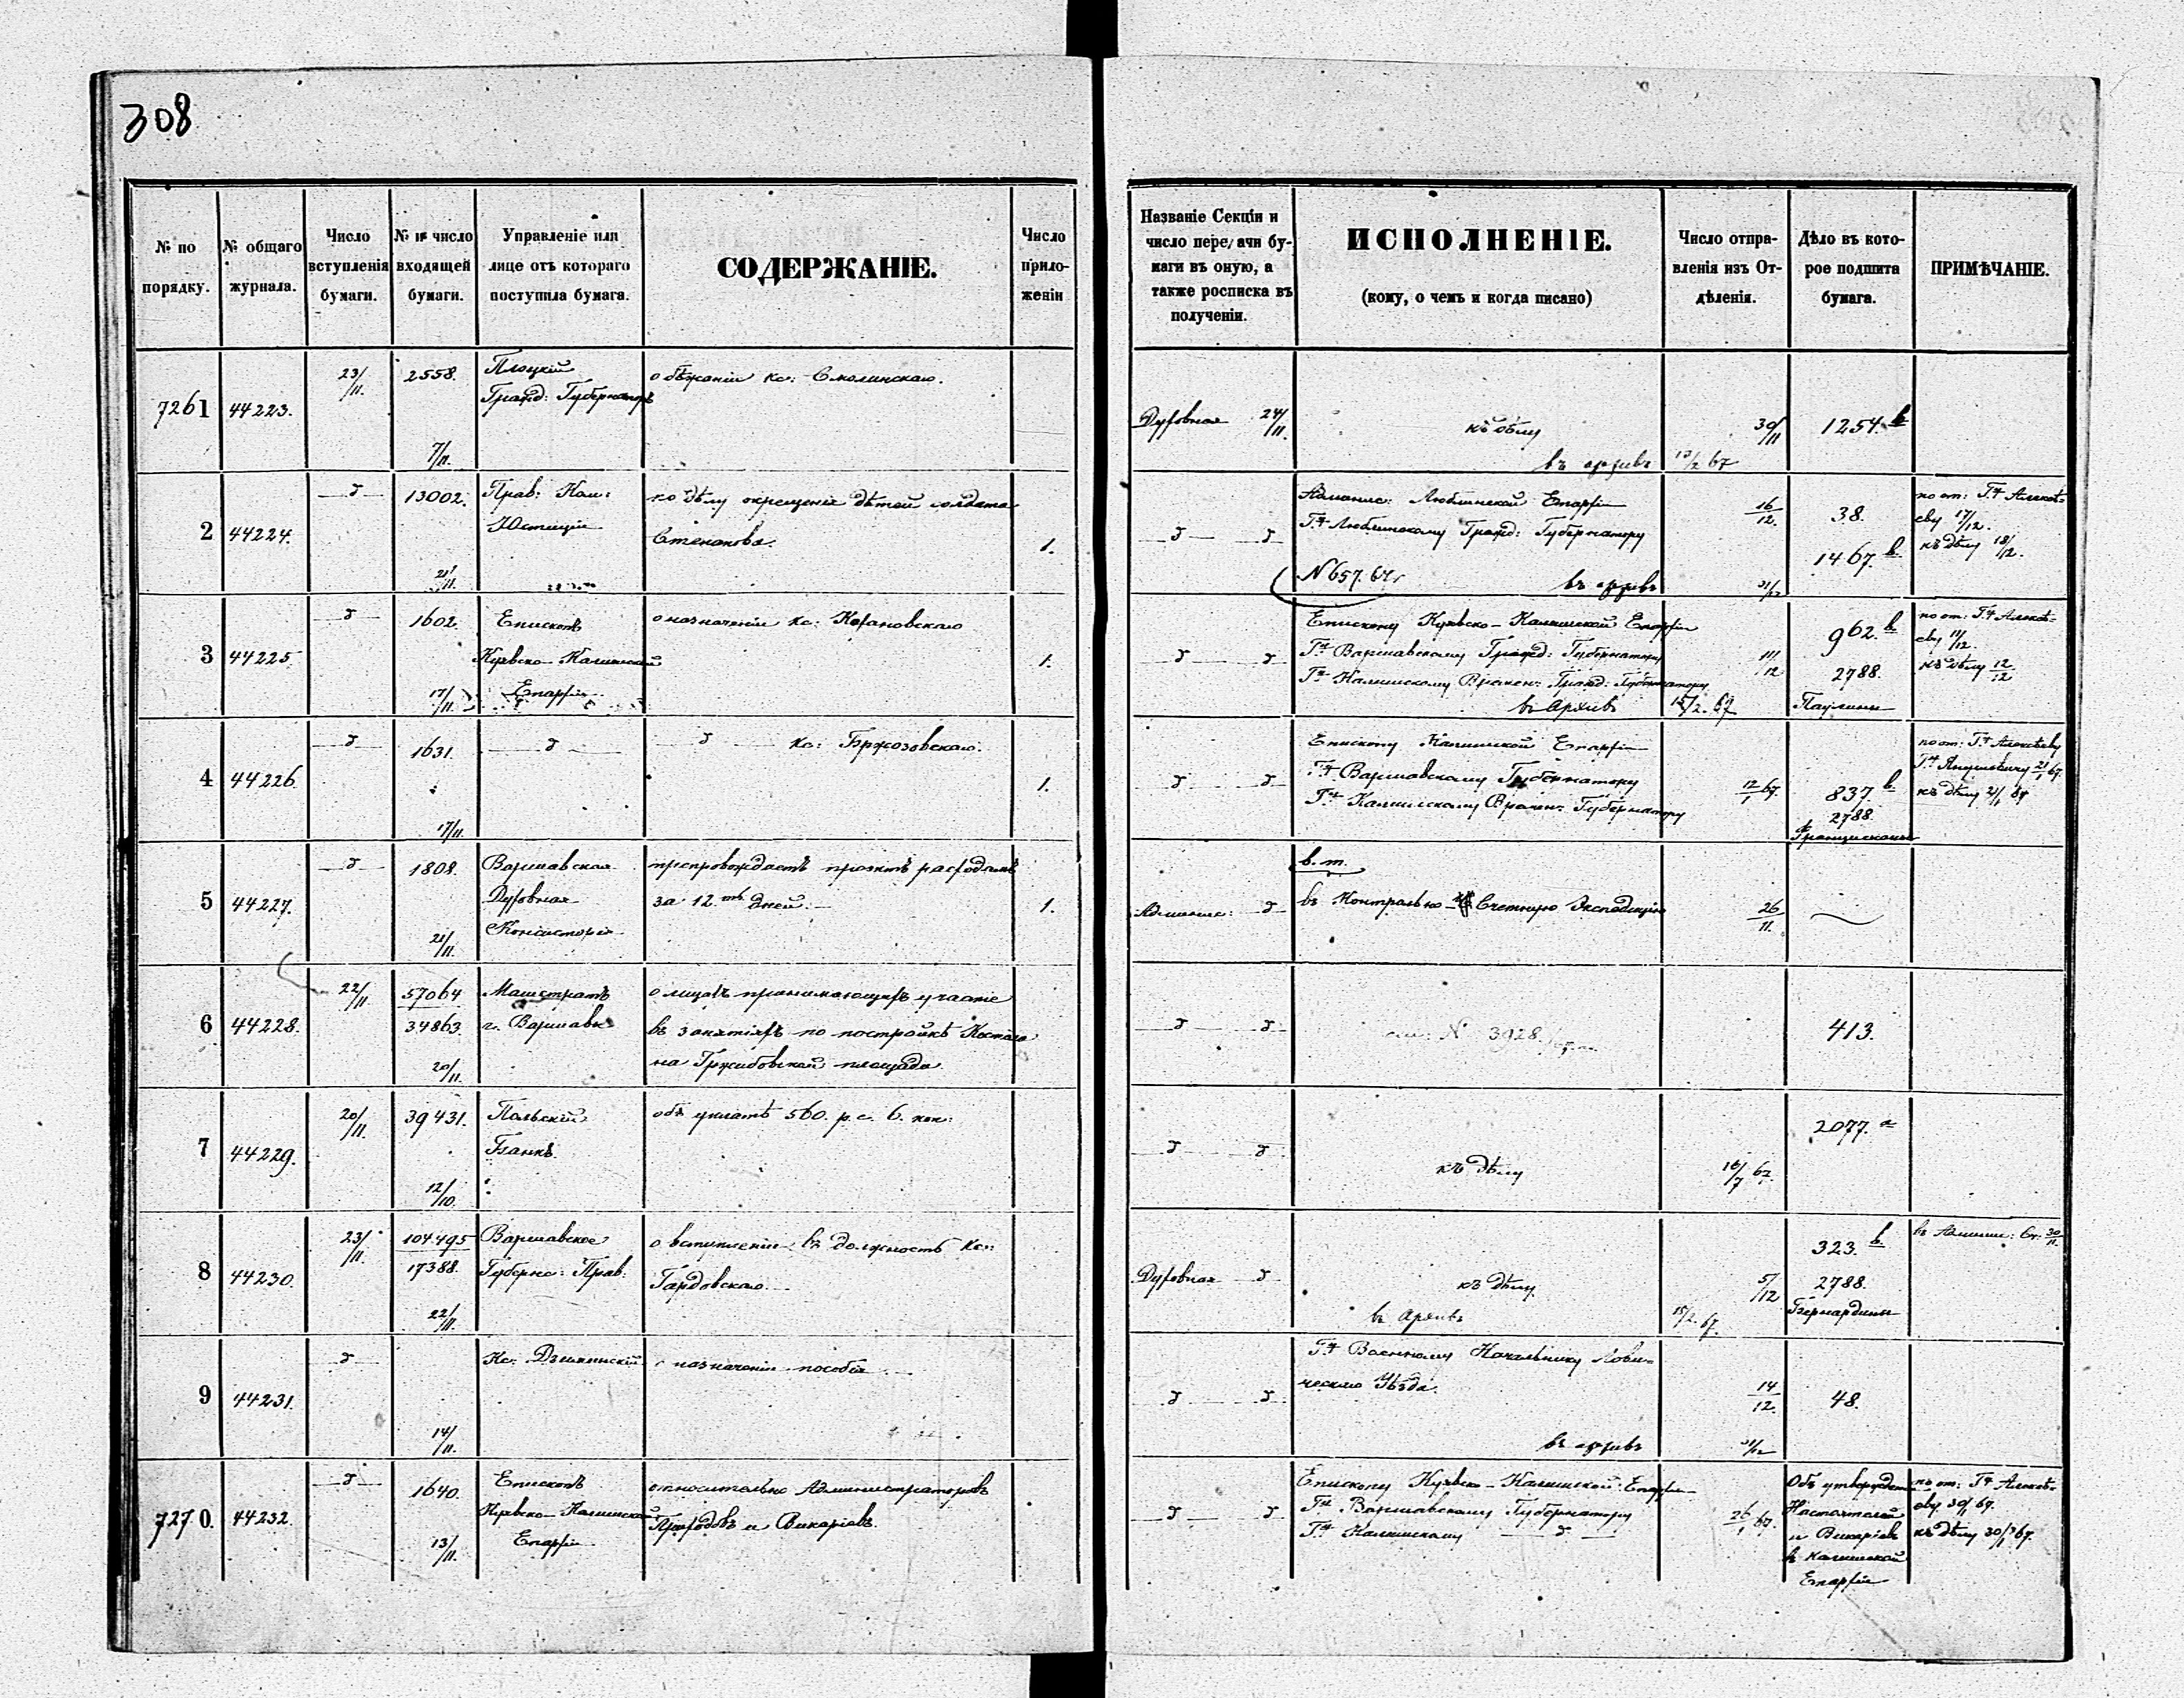 308
№ по порядку.
№ общаго журнала.
Число вступленія бумаги.
№ и число входящей бумаги.
Управленіе или лице отъ котораго поступила бумага.
СОДЕРЖАНІЕ.
Число приложеніи
Названіе Секціи и число передачи бумаги въ оную, а также росписка въ полученіи.
ИСПОЛНЕНІЕ.
(кому, о чемъ и когда писано)
Число отправленія изъ Отдѣленія.
Дѣло въ которое подшита бумага.
ПРИМѢЧАНІЕ.
7261 44223. 23/11. 2558. 7/11.
Плоцкій
Гражд: Губернаторъ
о бѣжаніи кс: Смолинскаго.
Духовная 24/11.
30/11 1254. в
въ архивъ 13/2 67
2 44224. д 13002. 21/11.
Прав: Ком:
Юстиціи
по дѣлу окрещенія дѣтей солдата
Степанова. 1.
д д
Админис: Люблинской Епархіи
Г. Люблинскому Гражд: Губернатору
N 657. 67.
въ архивъ
16/12. 38.
1467. в.
по от: Г. Алексѣеву 17/12.
къ дѣлу 18/12.
3 44225. д 1602. 17/11.
Епископъ
Куявско-Калишской
Епархіи
о назначеніи кс: Кохановскаго 1.
д д
Епископу Куявско-Калишской Епархіи
Г. Варшавскому Гражд: Губернатору
Г. Калишскому Времен: Гражд: Губернатору
въ Архивъ 15/2. 67
11/12 962. в
2788.
Паулины
по от: Г. Алексѣеву 11/12.
къ дѣлу 12/12
4 44226. д 1631. 17/11. д
д кс: Бржозовскаго. 1.
д д
Епископу Калишской Епархіи
Г. Варшавскому Губернатору
Г. Калишскому Времен: Губернатору
12/1 67. 837. в
2788.
Францисканы
по от: Г. Алексѣеву
Г. 21/1 67.
къ дѣлу 21/1 67
5 44227. д 1808. 21/11.
Варшавская
Духовная
Консисторія
препровождаетъ проэктъ расходамъ
за 12 ть дней. 1.
Админис: д
в. т.
въ Контрольно-Счетную Экспедицію
26/11.
6 44228. 22/11. 57064
34863. 20/11.
Магистратъ
г. Варшавы
о лицахъ принимающихъ участіе
въ занятіяхъ по постройкѣ Костела
на Гржибовской площади
д д
см: N 3928
413.
7 44229. 20/11. 39431. 12/10.
Польскій
Банкъ.
объ уплатѣ 560. р. с. 6. коп:
д д
къ дѣлу
16/7 67. 2077. а
8 44230. 23/11. 104495
17388. 22/11.
Варшавское
Губернс: Прав:
о вступленіи въ должность кс:
Гардовскаго
Духовная д
къ дѣлу
въ Архивъ 15/2. 67.
5/12 323. в.
2788.
Бернардины
въ Админис: От: 30/11.
9 44231. д 14/11.
о назначеніи пособія
д д
Г. Военному Начальнику Ловическаго Уѣзда.
въ архивъ
14/12. 48.
7270. 44232. д 1640. 13/11.
Епископъ
Куявско-Калишской
Епархіи
относительно Администраторовъ
Приходовъ и Викаріевъ.
д д
Епископу Куявско-Калишской Епархіи
Г. Варшавскому Губернатору
Г. Калишскому д
26/1 67.
Объ утвержденіи
Настоятелей
и Викаріевъ
въ Калишской
Епархіи
по от: Г. Алексѣеву 30/1 67.
къ дѣлу 30/1 67.